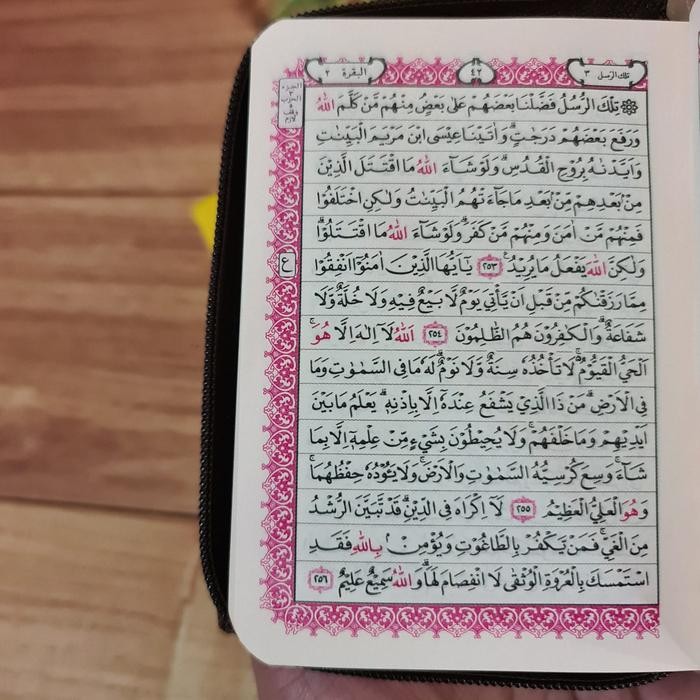 تلك الرسل ٣
٤٢
البقرة ٢
الجزء
٣
الحزب
٥
وقف
لازم
تِلْكَ الرُّسُلُ فَضَّلْنَا بَعْضَهُمْ عَلٰى بَعْضٍۘ مِنْهُمْ مَّنْ كَلَّمَ اللّٰهُ
وَرَفَعَ بَعْضَهُمْ دَرَجٰتٍۗ وَاٰتَيْنَا عِيْسَى ابْنَ مَرْيَمَ الْبَيِّنٰتِ
وَاَيَّدْنٰهُ بِرُوْحِ الْقُدُسِۗ وَلَوْ شَاۤءَ اللّٰهُ مَا اقْتَتَلَ الَّذِيْنَ
مِنْۢ بَعْدِهِمْ مِّنْۢ بَعْدِ مَا جَاۤءَتْهُمُ الْبَيِّنٰتُ وَلٰكِنِ اخْتَلَفُوْا
فَمِنْهُمْ مَّنْ اٰمَنَ وَمِنْهُمْ مَّنْ كَفَرَۗ وَلَوْ شَاۤءَ اللّٰهُ مَا اقْتَتَلُوْاۗ
ع
وَلٰكِنَّ اللّٰهَ يَفْعَلُ مَا يُرِيْدُ ࣖ ٢٥٣ يٰٓاَيُّهَا الَّذِيْنَ اٰمَنُوْٓا اَنْفِقُوْا
مِمَّا رَزَقْنٰكُمْ مِّنْ قَبْلِ اَنْ يَّأْتِيَ يَوْمٌ لَّا بَيْعٌ فِيْهِ وَلَا خُلَّةٌ وَّلَا
شَفَاعَةٌۗ وَالْكٰفِرُوْنَ هُمُ الظّٰلِمُوْنَ ٢٥٤ اَللّٰهُ لَآ اِلٰهَ اِلَّا هُوَۚ
الْحَيُّ الْقَيُّوْمُ ەۚ لَا تَأْخُذُهٗ سِنَةٌ وَّلَا نَوْمٌۗ لَهٗ مَا فِى السَّمٰوٰتِ وَمَا
فِى الْاَرْضِۗ مَنْ ذَا الَّذِيْ يَشْفَعُ عِنْدَهٗٓ اِلَّا بِاِذْنِهٖۗ يَعْلَمُ مَا بَيْنَ
اَيْدِيْهِمْ وَمَا خَلْفَهُمْۚ وَلَا يُحِيْطُوْنَ بِشَيْءٍ مِّنْ عِلْمِهٖٓ اِلَّا بِمَا
شَاۤءَۚ وَسِعَ كُرْسِيُّهُ السَّمٰوٰتِ وَالْاَرْضَۚ وَلَا يَـُٔوْدُهٗ حِفْظُهُمَاۚ
وَهُوَ الْعَلِيُّ الْعَظِيْمُ ٢٥٥ لَآ اِكْرَاهَ فِى الدِّيْنِۗ قَدْ تَّبَيَّنَ الرُّشْدُ
مِنَ الْغَيِّۚ فَمَنْ يَّكْفُرْ بِالطَّاغُوْتِ وَيُؤْمِنْۢ بِاللّٰهِ فَقَدِ
اسْتَمْسَكَ بِالْعُرْوَةِ الْوُثْقٰى لَا انْفِصَامَ لَهَاۗ وَاللّٰهُ سَمِيْعٌ عَلِيْمٌ ٢٥٦